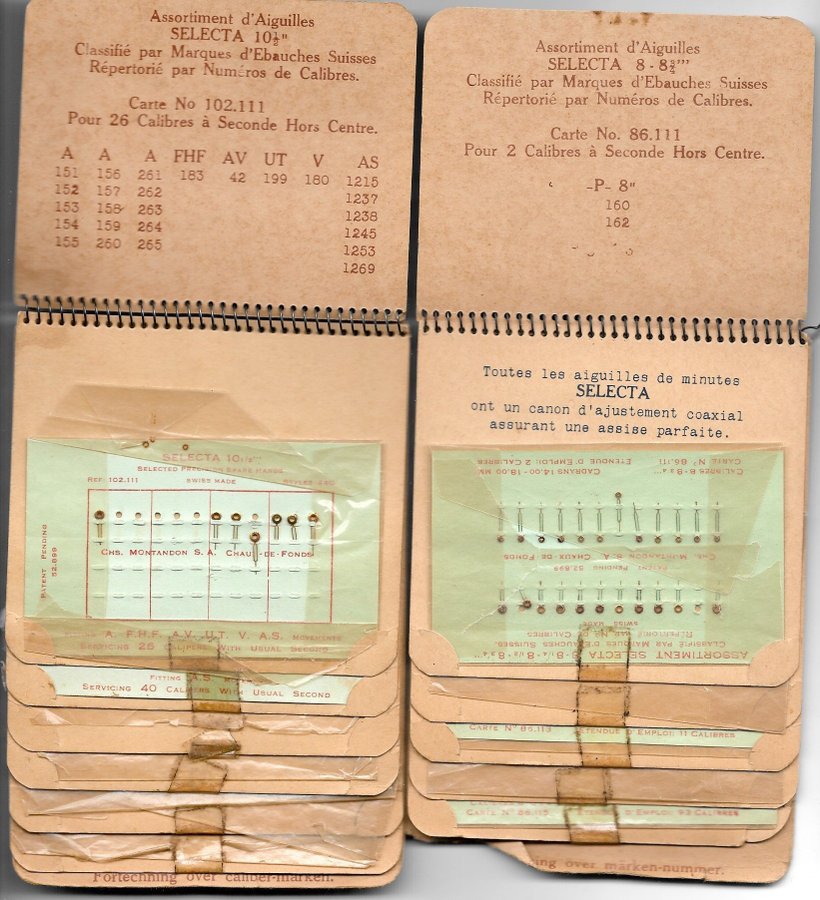 Assortiment d'Aiguilles
SELECTA 10½"
Classifié par Marques d'Ebauches Suisses
Répertorié par Numéros de Calibres.
Carte No 102.111
Pour 26 Calibres à Seconde Hors Centre.
A A A FHF AV UT V AS
151 156 261 183 42 199 180 1215
152 157 262 1237
153 158 263 1238
154 159 264 1245
155 260 265 1253
1269
SELECTA 10½'''
SELECTED PRECISION SPARE HANDS
REF 102.111 SWISS MADE STYLES
PATENT PENDING
52.899
CHS. MONTANDON S.A. CHAUX-DE-FONDS
A. F.H.F. A.V. U.T. V. A.S. MOVEMENTS
SERVICING 26 CALIPERS WITH USUAL SECOND
FITTING A.S.
SERVICING 40 CALIPERS WITH USUAL SECOND
Förteckning över caliber-märken.
Assortiment d'Aiguilles
SELECTA 8-8¾'''
Classifié par Marques d'Ebauches Suisses
Répertorié par Numéros de Calibres.
Carte No. 86.111
Pour 2 Calibres à Seconde Hors Centre.
-P- 8"
160
162
Toutes les aiguilles de minutes
SELECTA
ont un canon d'ajustement coaxial
assurant une assise parfaite.
CARTE No 86.111 ETENDUE D'EMPLOI: 2 CALIBRES
CALIBRES 8-8¾''' CADRANS 14.00-18.00 MM
CHS. MONTANDON S.A. CHAUX-DE-FONDS
PATENT PENDING 52.899
SWISS MADE
RÉPERTORIÉ PAR No DE CALIBRES
CLASSIFIÉ PAR MARQUES D'EBAUCHES SUISSES
ASSORTIMENT SELECTA 8-8¼-8½-8¾'''
CARTE No 86.113 ETENDUE D'EMPLOI: 11 CALIBRES
CARTE No 86.115 ETENDUE D'EMPLOI: 93 CALIBRES
ning över märken-nummer.